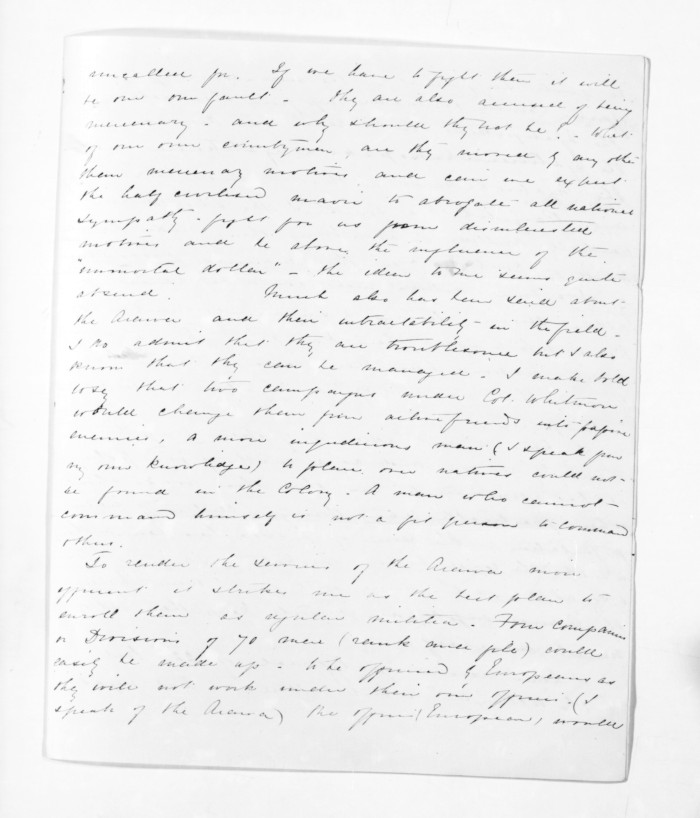 uncalled for. If we have to fight them it will
be our own fault - They are also accused of being
mercenary - and why should they not be? - What
of our own countrymen, are they moved by any other
than mercenary motives and can we expect
the half civilised maori to abrogate all national
sympathy - fight for us from disinterested
motives and be above the influence of the
"immortal dollar" - the idea to me seems quite
absurd. Much also has been said about
the Arawa and their intractability in the field -
I do admit that they are troublesome but I also
know that they can be managed. I make bold
to say that two campaigns under Col. Whitmore
would change them from active friends into passive
enemies, a more injudicious man (I speak from
my own knowledge) to place our natives could not
be found in the Colony. A man who cannot
command himself is not a fit person to command
others.
To render the services of the Arawa more
efficient it strikes me as the best plan to
enroll them as regular militia. Four Companies
or Divisions of 70 men (rank and file) could
easily be made up - to be officered by Europeans as
they will not work under their own officers. (I
speak of the Arawa) the officers (European) would